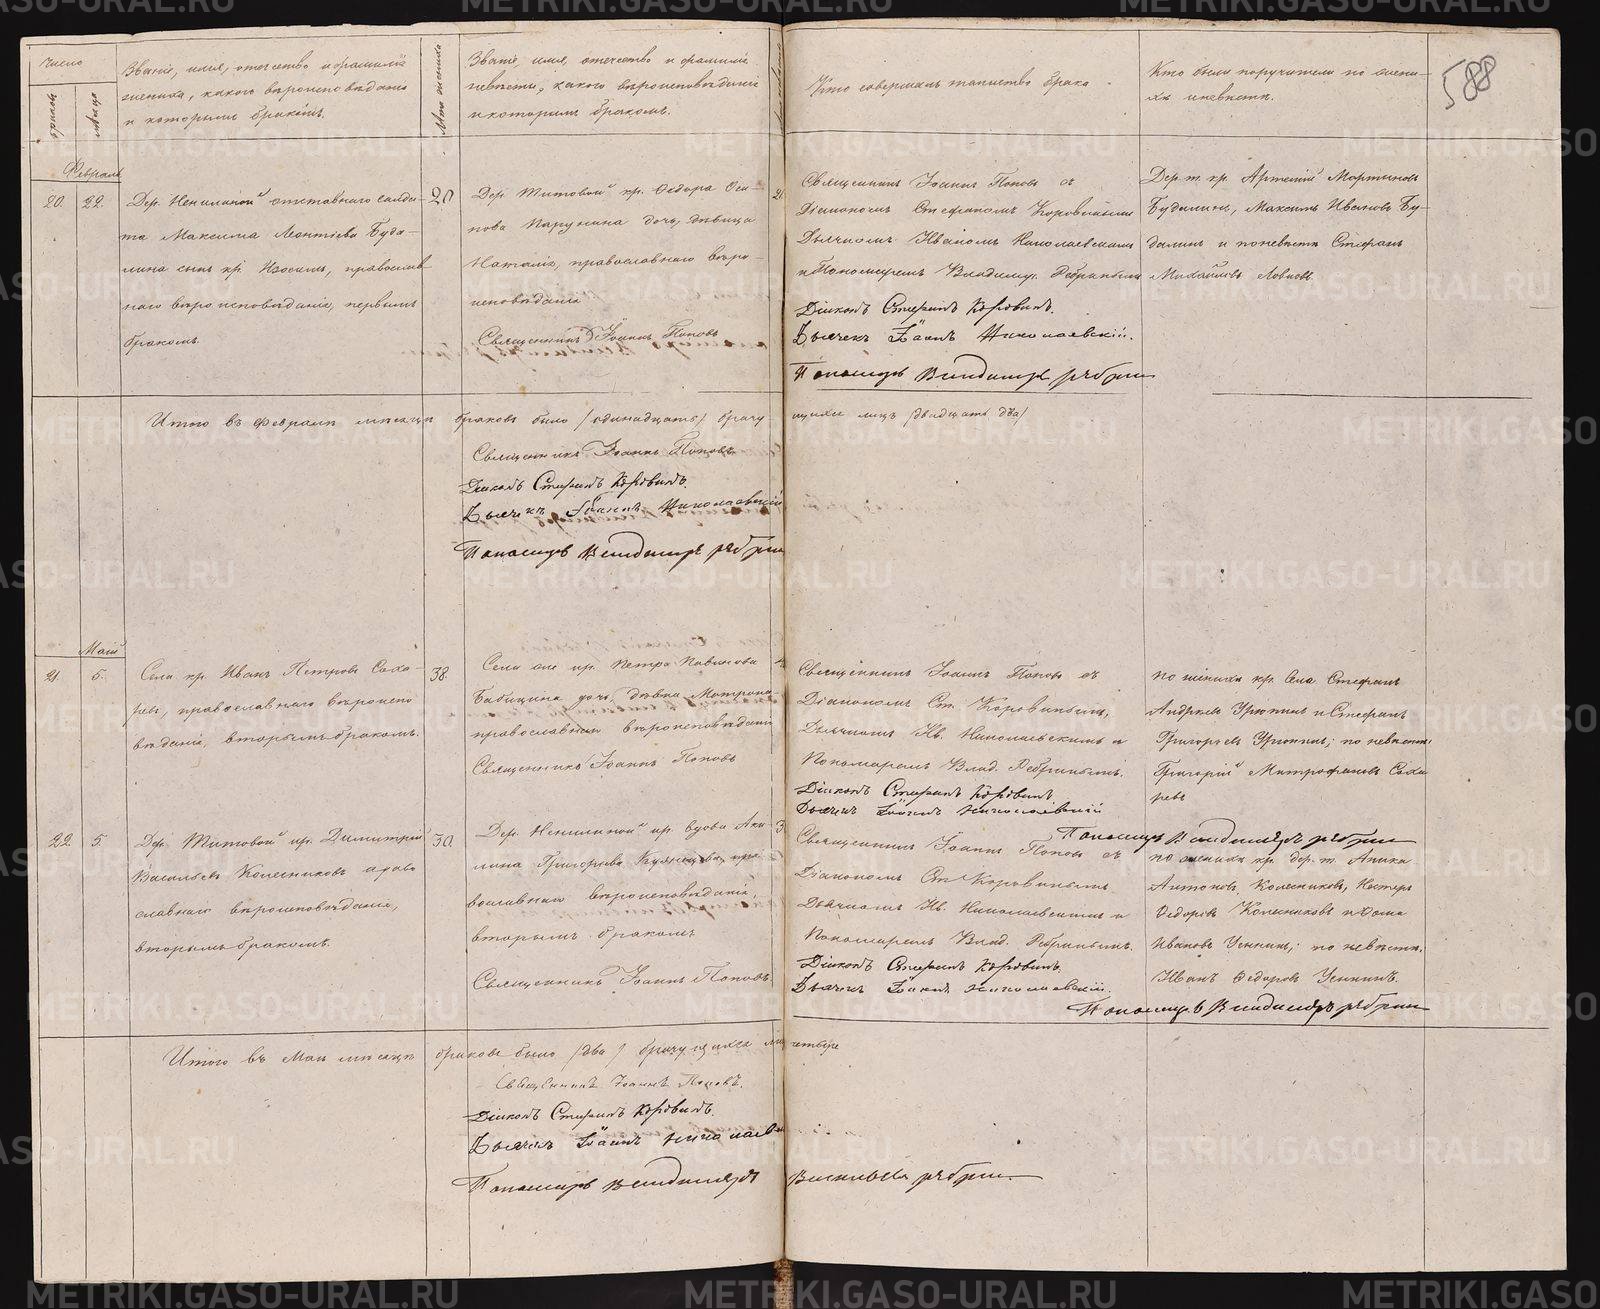 число
браков
месяца
Званіе, имя, отчество и фамилія
жениха, какого вѣроисповѣданія
и которымъ бракомъ.
Званіе, имя, отчество и фамилія
невѣсты, какого вѣроисповѣданія
и которымъ бракомъ.
Кто совершалъ таинство брака
Кто были поручители по жени-
хѣ и невѣстѣ.
588
Февраль
20. 22.
отставнаго салда-
та Максима Леонтіева Буда-
лина сынъ кр. православ
наго вѣроисповѣданія, первымъ
бракомъ.
20
Дер. Титовой кр. Ѳедора Оси-
пова дочь, дѣвица
Наталія, православнаго вѣро-
исповѣданія
Священникъ Іоаннъ Поповъ
Священникъ Іоаннъ Поповъ съ
Діакономъ Стефаномъ Коровинымъ
Дьячкомъ Иваномъ Николаевскимъ
и Пономаремъ
Діаконъ Стефанъ Коровинъ.
Дьячекъ Іоаннъ Николаевскій.
Пономарь Владимиръ
Дер. т. кр. Артемій Мартыновъ
Будалинъ, Максимъ Ивановъ Бу-
далинъ и по невѣстѣ Стефанъ
Михайловъ
Итого въ Февралѣ мѣсяцѣ браковъ было (одинадцать) брачу-
щихся лицъ (двадцать два)
Священникъ Іоаннъ Поповъ
Діаконъ Стефанъ Коровинъ.
Дьячекъ Іоаннъ Николаевскій
Пономарь Владимиръ
Май
21. 5.
Села кр. Иванъ Петровъ Саха-
ревъ, православнаго вѣроиспо
вѣданія, вторымъ бракомъ.
38.
Села сего кр. Петра
Бабицина дочь, дѣвка Матрона
православнаго вѣроисповѣданія
Священникъ Іоаннъ Поповъ
Священникъ Іоаннъ Поповъ съ
Діакономъ Ст. Коровинымъ,
Дьячкомъ Ив. Николаевскимъ и
Пономаремъ Влад.
Діаконъ Стефанъ Коровинъ
Дьячекъ Іоаннъ Николаевскій
Пономарь Владимиръ
по женихѣ кр. Села Стефанъ
Андреевъ Урюпинъ и Стефанъ
Григорьевъ Урюпинъ; по невѣстѣ
Григорій Митрофановъ Саха
ревъ
22. 5
Дер. Титовой кр. Димитрій
Васильевъ Колесниковъ право
славнаго вѣроисповѣданія,
вторымъ бракомъ.
30
вдова Аки-
лина Григорьева Кузнецова, пра
вославнаго вѣроисповѣданія,
вторымъ бракомъ
Священникъ Іоаннъ Поповъ
Священникъ Іоаннъ Поповъ съ
Діакономъ Ст. Коровинымъ
Дьячкомъ Ив. Николаевскимъ и
Пономаремъ Влад.
Діаконъ Стефанъ Коровинъ.
Дьячекъ Іоаннъ Николаевскій.
Пономарь Владимиръ
по женихѣ кр. дер. т. Аника
Антоновъ Колесниковъ, Нестеръ
Ѳедоровъ Колесниковъ и Ѳома
Ивановъ по невѣстѣ
Иванъ Ѳедоровъ
Итого въ Маѣ мѣсяцѣ браковъ было (два) брачущихся лицъ четыре
Священникъ Іоаннъ Поповъ.
Діаконъ Стефанъ Коровинъ.
Дьячекъ Іоаннъ
Пономарь Владимиръ Васильевъ
METRIKI.GASO-URAL.RU